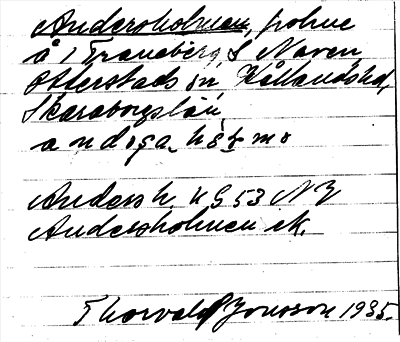 Andersholmen, holme
å i Traneberg, S Näven,
Otterstads sn, Kållands hd,
Skaraborgs län,
andəʂa hɵlmə
Andersh. KS 53 NY
Andersholmen ek.
Thorvald Jonsson 1935.